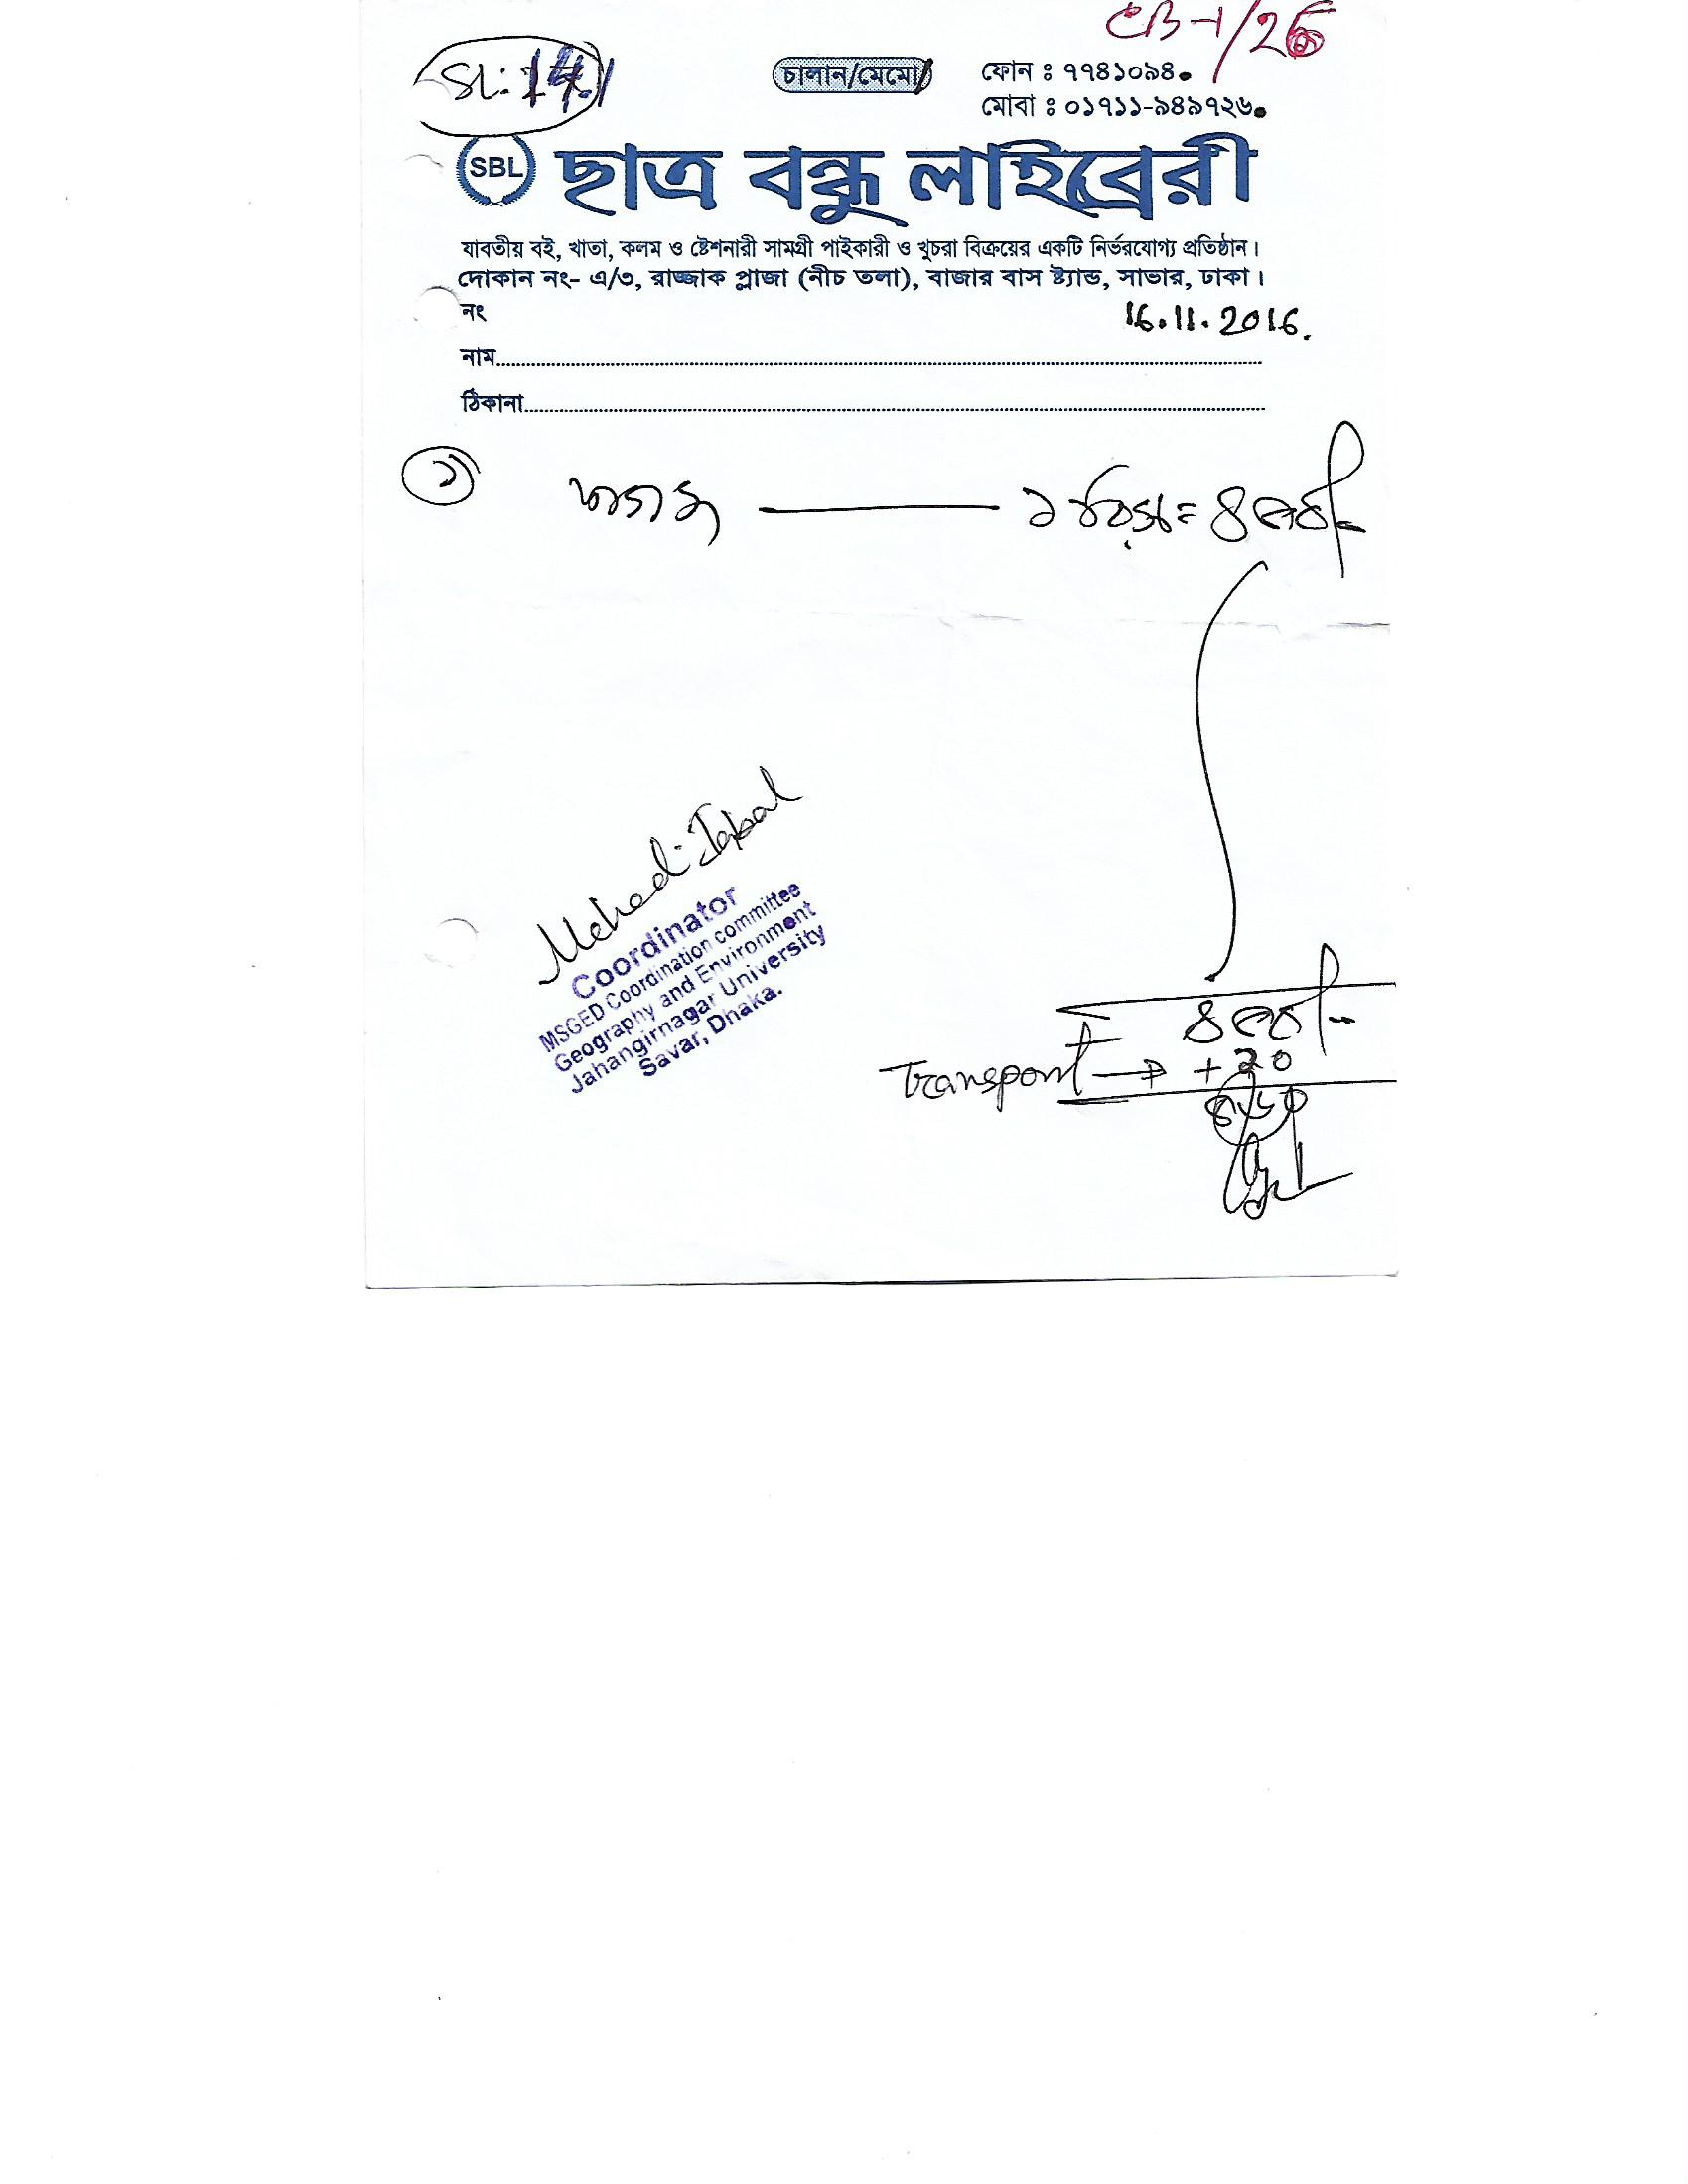 CB-1/26
SL: 14.1
চালান/মেমো
ফোন ঃ ৭৭৪১০৯৪
মোবা ঃ ০১৭১১-৯৪৯৭২৬
SBL
ছাত্র বন্ধু লাইব্রেরী
যাবতীয় বই, খাতা, কলম ও ষ্টেশনারী সামগ্রী পাইকারী ও খুচরা বিক্রয়ের একটি নির্ভরযোগ্য প্রতিষ্ঠান।
দোকান নং- এ/৩, রাজ্জাক প্লাজা (নীচ তলা), বাজার বাস ষ্ট্যান্ড, সাভার, ঢাকা।
নং
16.11.2016.
নাম
ঠিকানা
১
কাগজ — ১ রিম =
Mehedi Iqbal
Coordinator
MSGED Coordination committee
Geography and Environment
Jahangirnagar University
Savar, Dhaka.
Transport → + 20